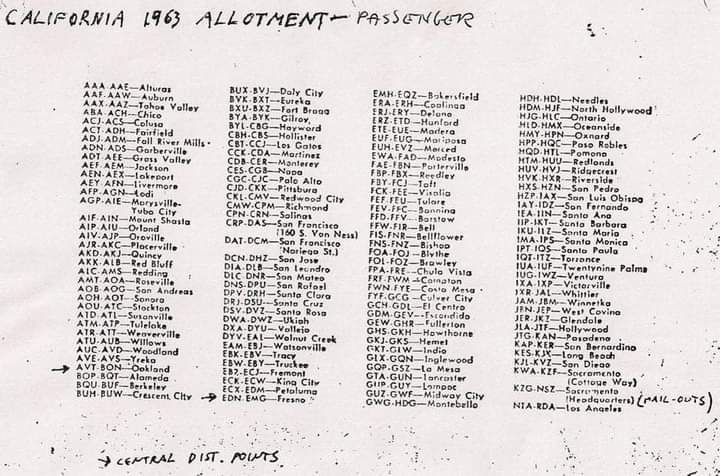 CALIFORNIA 1963 ALLOTMENT - PASSENGER
AAA-AAE—Alturas
AAF-AAW—Auburn
AAX-AAZ—Tahoe Valley
ABA-ACH—Chico
ACJ-ACS—Colusa
ACT-ADH—Fairfield
ADJ-ADM—Fall River Mills
ADN-ADS—Garberville
ADT-AEE—Grass Valley
AEF-AEM—Jackson
AEN-AEX—Lakeport
AEY-AFN—Livermore
AFP-AGN—Lodi
AGP-AIE—Marysville-
Yuba City
AIF-AIN—Mount Shasta
AIP-AIU—Orland
AIV-AJP—Oroville
AJR-AKC—Placerville
AKD-AKJ—Quincy
AKK-ALB—Red Bluff
ALC-AMS—Redding
AMT-AOA—Roseville
AOB-AOG—San Andreas
AOH-AOT—Sonora
AOU-ATC—Stockton
ATD-ATL—Susanville
ATM-ATP—Tulelake
ATR-ATT—Weaverville
ATU-AUB—Willows
AUC-AVD—Woodland
AVE-AVS—Yreka
AVT-BON—Oakland
BOP-BQT—Alameda
BQU-BUF—Berkeley
BUH-BUW—Crescent City
BUX-BVJ—Daly City
BVK-BXT—Eureka
BXU-BXZ—Fort Bragg
BYA-BYK—Gilroy
BYL-CBG—Hayward
CBH-CBS—Hollister
CBT-CCJ—Los Gatos
CCK-CDA—Martinez
CDB-CER—Monterey
CES-CGB—Napa
CGC-CJC—Palo Alto
CJD-CKK—Pittsburg
CKL-CMV—Redwood City
CMW-CPM—Richmond
CPN-CRN—Salinas
CRP-DAS—San Francisco
(160 S. Van Ness)
DAT-DCM—San Francisco
(Noriega St.)
DCN-DHZ—San Jose
DIA-DLB—San Leandro
DLC-DNR—San Mateo
DNS-DPU—San Rafael
DPV-DRH—Santa Clara
DRJ-DSU—Santa Cruz
DSV-DVZ—Santa Rosa
DWA-DWZ—Ukiah
DXA-DYU—Vallejo
DYV-EAL—Walnut Creek
EAM-EBJ—Watsonville
EBK-EBV—Tracy
EBW-EBY—Truckee
EBZ-ECJ—Fremont
ECK-ECW—King City
ECX-EDM—Petaluma
EDN-EMG—Fresno
EMH-EQZ—Bakersfield
ERA-ERH—Coalinga
ERJ-ERY—Delano
ERZ-ETD—Hanford
ETE-EUE—Madera
EUF-EUG—Mariposa
EUH-EVZ—Merced
EWA-FAD—Modesto
FAE-FBN—Porterville
FBP-FBX—Reedley
FBY-FCJ—Taft
FCK-FEE—Visalia
FEF-FEU—Tulare
FEV-FFC—Banning
FFD-FFV—Barstow
FFW-FIR—Bell
FIS-FNR—Bellflower
FNS-FNZ—Bishop
FOA-FOJ—Blythe
FOL-FOZ—Brawley
FPA-FRE—Chula Vista
FRF-FWM—Compton
FWN-FYE—Costa Mesa
FYF-GCG—Culver City
GCH-GDL—El Centro
GDM-GEV—Escondido
GEW-GHR—Fullerton
GHS-GKH—Hawthorne
GKJ-GKS—Hemet
GKT-GLW—Indio
GLX-GQN—Inglewood
GQP-GSZ—La Mesa
GTA-GUN—Lancaster
GUP-GUY—Lompoc
GUZ-GWF—Midway City
GWG-HDG—Montebello
HDH-HDL—Needles
HDM-HJF—North Hollywood
HJG-HLC—Ontario
HLD-HMX—Oceanside
HMY-HPN—Oxnard
HPP-HQC—Paso Robles
HQD-HTL—Pomona
HTM-HUU—Redlands
HUV-HVJ—Ridgecrest
HVK-HXR—Riverside
HXS-HZN—San Pedro
HZP-IAX—San Luis Obispo
IAY-IDZ—San Fernando
IEA-IIN—Santa Ana
IIP-IKT—Santa Barbara
IKU-ILZ—Santa Maria
IMA-IPS—Santa Monica
IPT-IQS—Santa Paula
IQT-ITZ—Torrance
IUA-IUF—Twentynine Palms
IUG-IWZ—Ventura
IXA-IXP—Victorville
IXR-JAL—Whittier
JAM-JBM—Winnetka
JFN-JEP—West Covina
JER-JKZ—Glendale
JLA-JTF—Hollywood
JTG-KAN—Pasadena
KAP-KER—San Bernardino
KES-KJK—Long Beach
KJL-KVZ—San Diego
KWA-KZF—Sacramento
(Cottage Way)
KZG-NSZ—Sacramento
(Headquarters) (MAIL-OUTS)
NTA-RDA—Los Angeles
→ CENTRAL DIST. POINTS